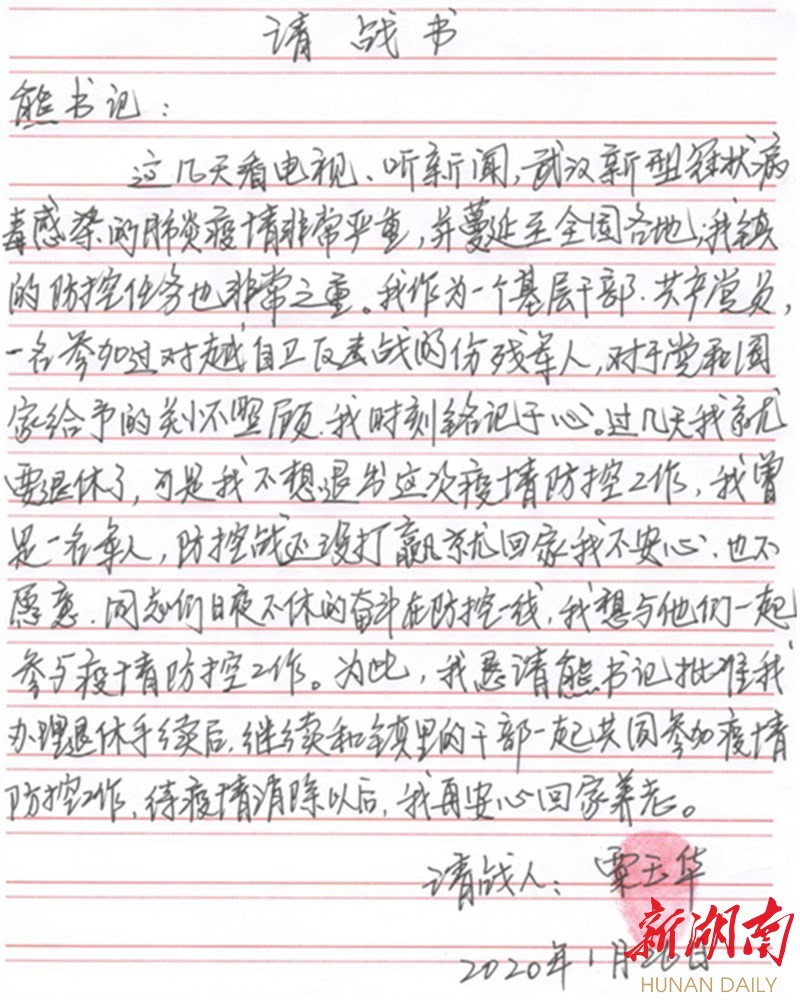 请战书
熊书记：
这几天看电视、听新闻，武汉新型冠状病
毒感染的肺炎疫情非常严重，并蔓延至全国各地，我镇
的防控任务也非常之重。我作为一个基层干部、共产党员，
一名参加过对越自卫反击战的伤残军人，对于党和国
家给予的关怀照顾，我时刻铭记于心。过几天我就
要退休了，可是我不想退出这次疫情防控工作，我曾
是一名军人，防控战还没打赢就回家我不安心、也不
愿意，同志们日夜不休的奋斗在防控一线，我想与他们一起
参与疫情防控工作。为此，我恳请熊书记批准我
办理退休手续后，继续和镇里的干部一起共同参加疫情
防控工作，待疫情消除以后，我再安心回家养老。
请战人：粟玉华
2020年1月26日
新湖南
HUNAN DAILY